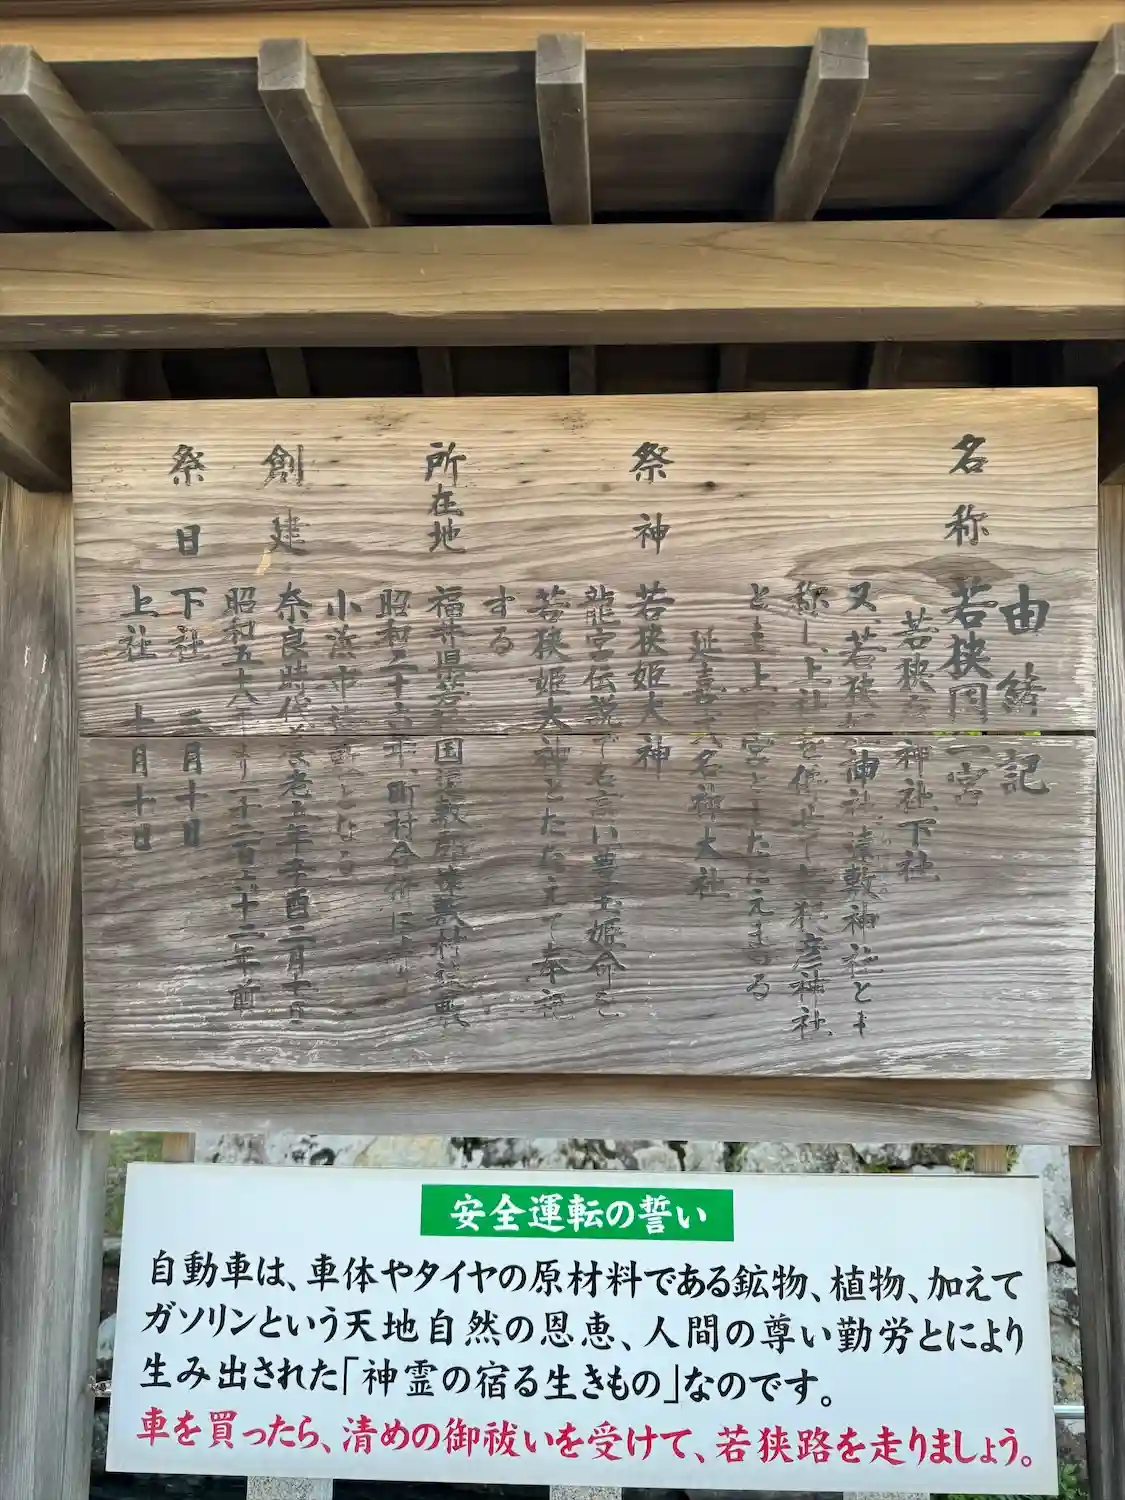 由緒記
名称 若狭国一宮
若狭 神社下社
又、若狭 神社遠敷神社と
称し、上社を併せて 狭彦神社
とも上 宮と たたえまつる
延喜式名神大社
祭神 若狭姫大神
龍宮伝説で名高い豊玉姫命を
若狭姫大神とたたえて奉祀
する
所在地 福井県若狭国遠敷郡遠敷村遠敷
昭和二十六年、町村合併により
小浜市遠敷となる
創建 奈良時代 養老五年辛酉二月十日
昭和五十八年より一千二百六十二年前
祭日 下社 三月十日
上社 十月十日
安全運転の誓い
自動車は、車体やタイヤの原材料である鉱物、植物、加えて
ガソリンという天地自然の恩恵、人間の尊い勤労とにより
生み出された「神霊の宿る生きもの」なのです。
車を買ったら、清めの御祓いを受けて、若狭路を走りましょう。